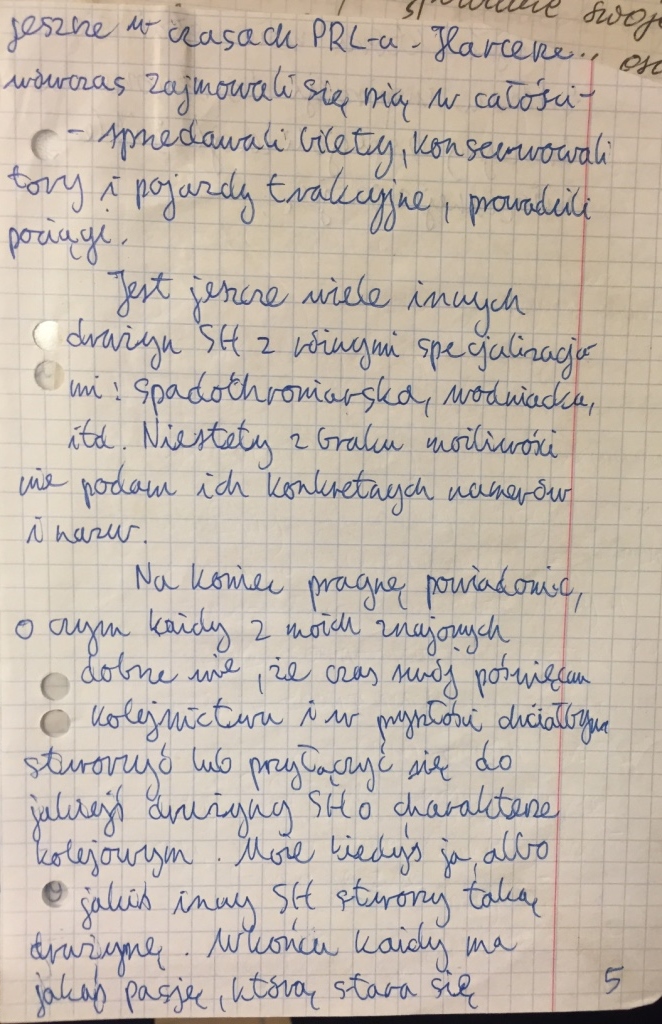 swoje
jeszcze w czasach PRL-u. Harcerze
wówczas zajmowali się nią w całości -
- sprzedawali bilety, konserwowali
tory i pojazdy trakcyjne, prowadzili
pociągi.
Jest jeszcze wiele innych
drużyn SH z różnymi specjalizacja
mi: spadochroniarska, wodniacka,
itd. Niestety z braku możliwości
nie podam ich konkretnych numerów
i nazw.
Na koniec pragnę powiadomić,
o czym każdy z moich znajomych
dobrze wie, że czas swój poświęcam
kolejnictwu i w przyszłości chciałbym
stworzyć lub przyłączyć się do
jakiejś drużyny SH o charakterze
kolejowym. Może kiedyś ja, albo
jakiś inny SH stworzy taką
drużynę. W końcu każdy ma
jakąś pasję, którą stara się
5